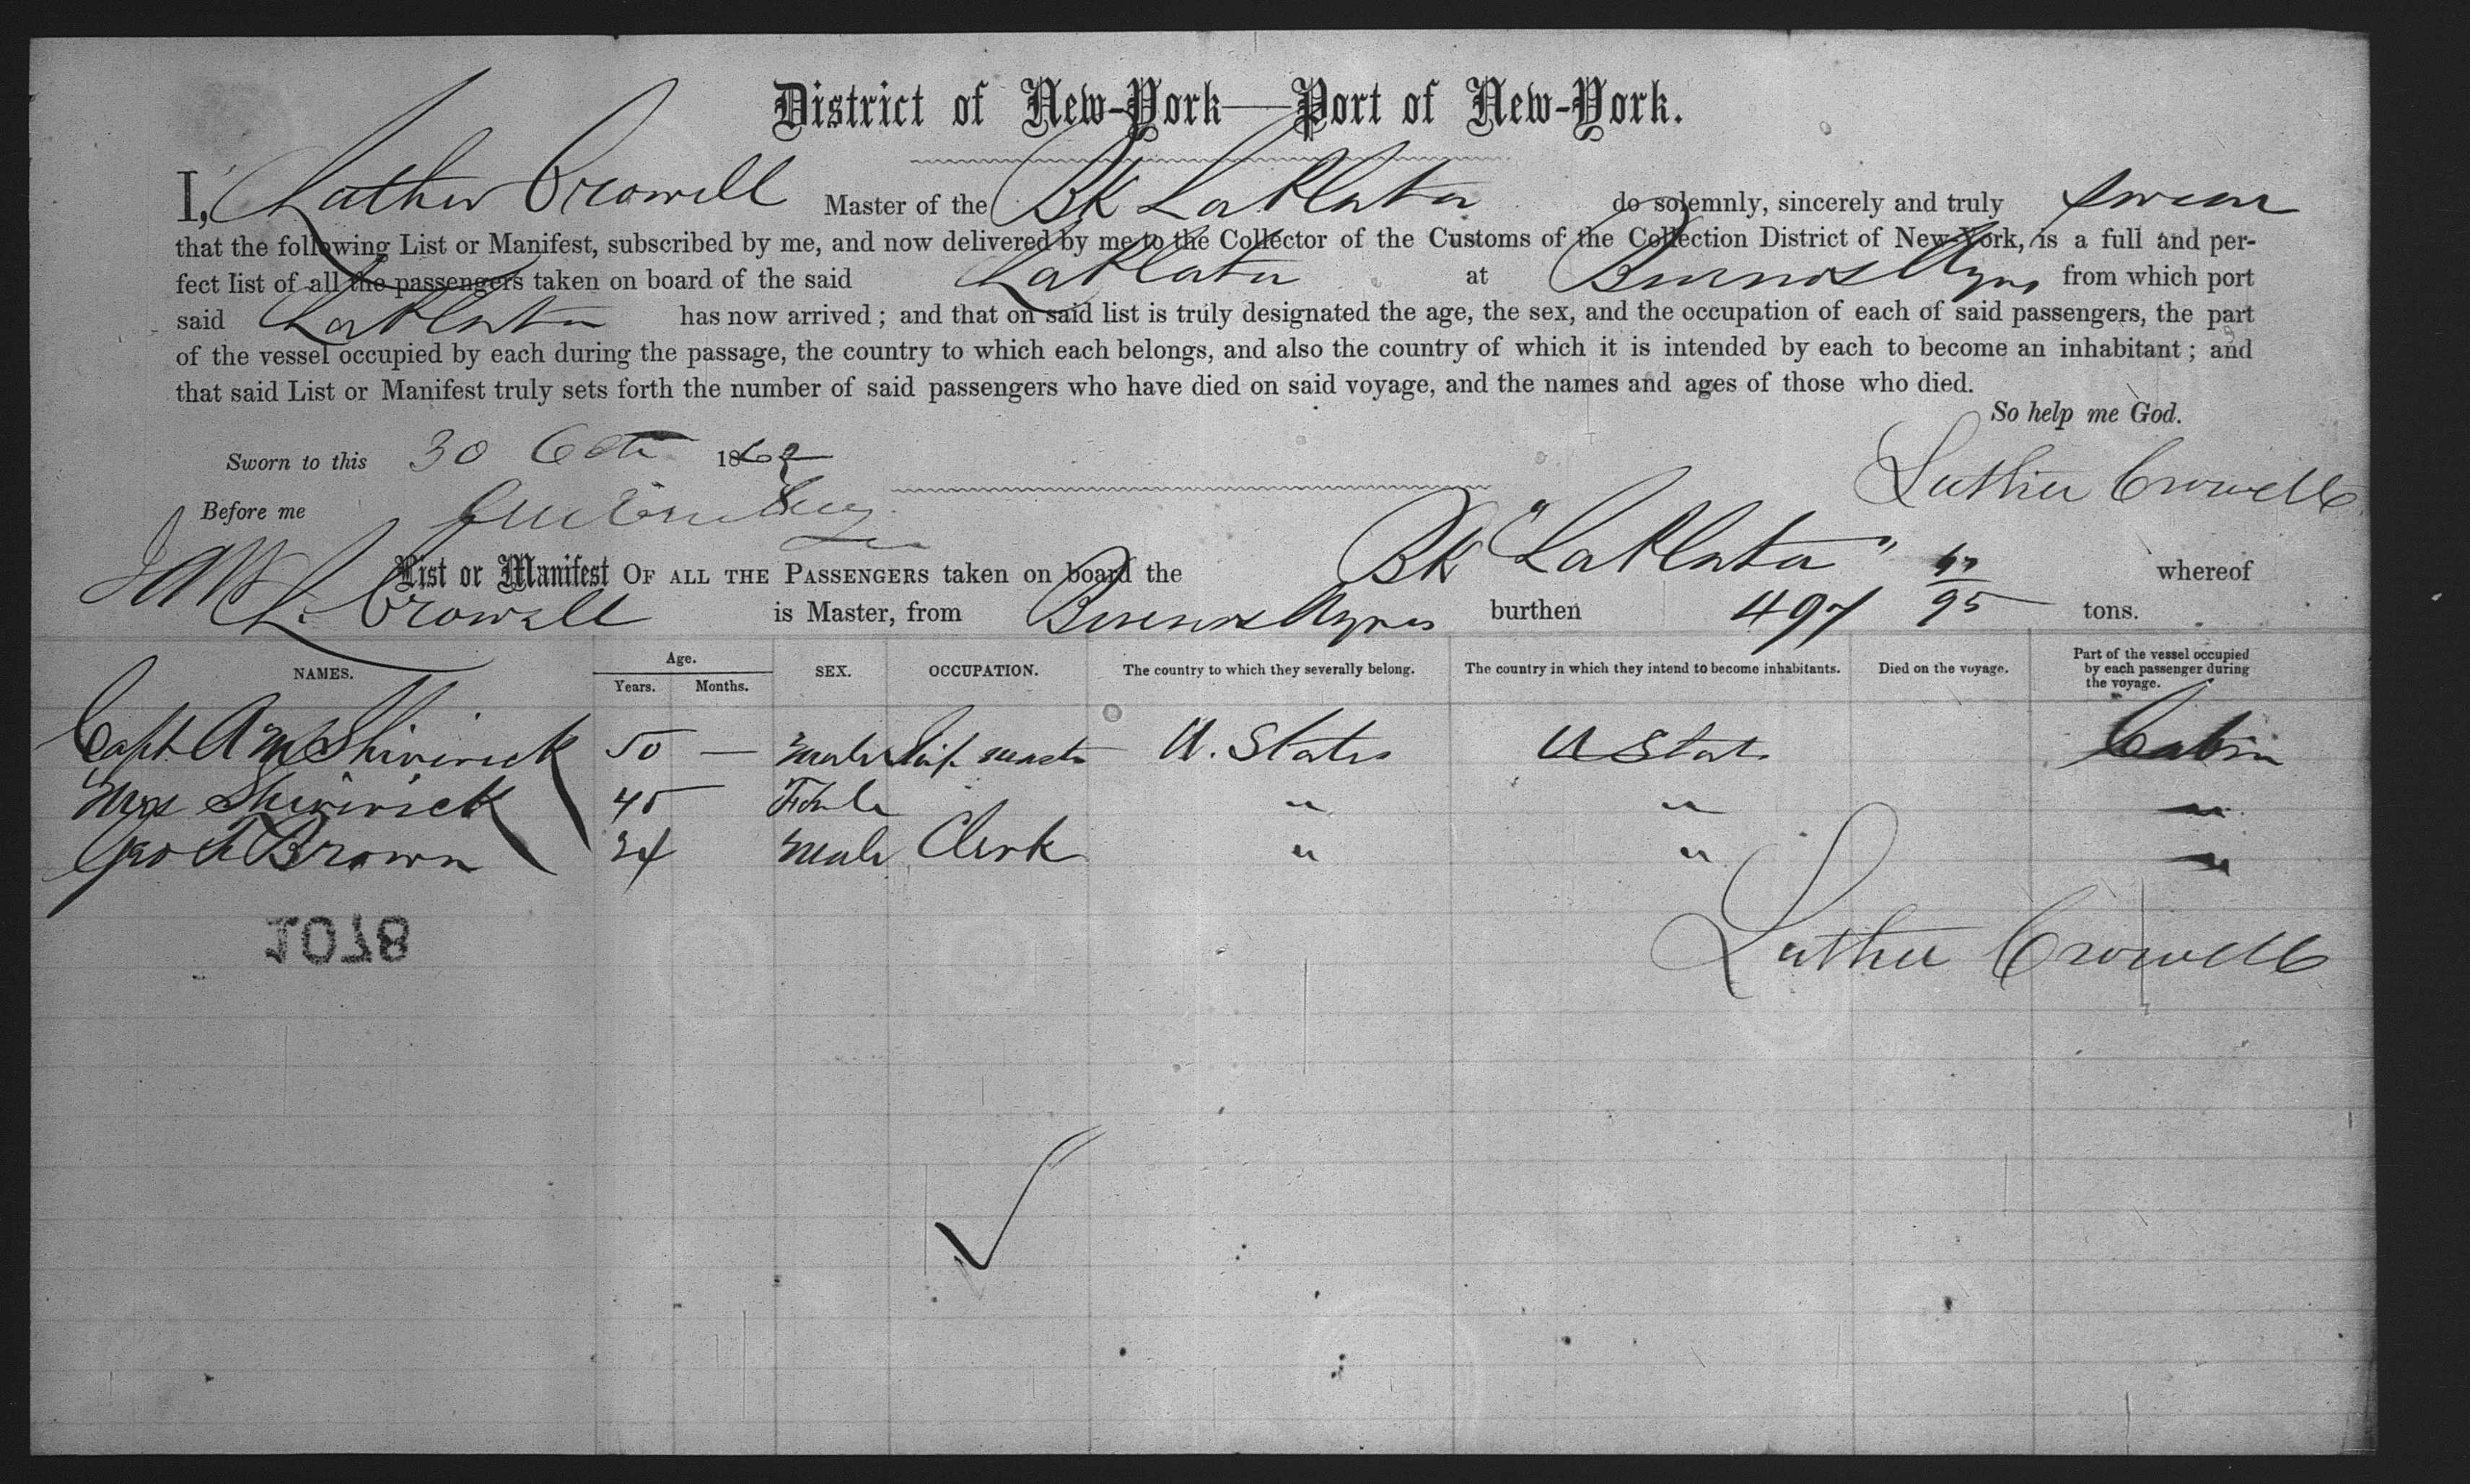 District of New-York—Port of New-York.
I, Luther Crowell Master of the Bk LaPlata do solemnly, sincerely and truly swear
that the following List or Manifest, subscribed by me, and now delivered by me to the Collector of the Customs of the Collection District of New-York, is a full and per-
fect list of all the passengers taken on board of the said LaPlata at Buenos Ayres from which port
said LaPlata has now arrived; and that on said list is truly designated the age, the sex, and the occupation of each of said passengers, the part
of the vessel occupied by each during the passage, the country to which each belongs, and also the country of which it is intended by each to become an inhabitant; and
that said List or Manifest truly sets forth the number of said passengers who have died on said voyage, and the names and ages of those who died.
So help me God.
Sworn to this 30 Oct 1862
Luther Crowell
Before me
List or Manifest OF ALL THE PASSENGERS taken on board the Bk "LaPlata" whereof
L. Crowell is Master, from Buenos Ayres burthen 497 /95 tons.
NAMES. Age. Years. Months. SEX. OCCUPATION. The country to which they severally belong. The country in which they intend to become inhabitants. Died on the voyage. Part of the vessel occupied by each passenger during the voyage.
Capt A M Shiverick 50 — male Ship master U. States U States Cabin
Mrs Shiverick 45 Female " " "
Geo A Brown 24 male Clerk " " "
1078
Luther Crowell